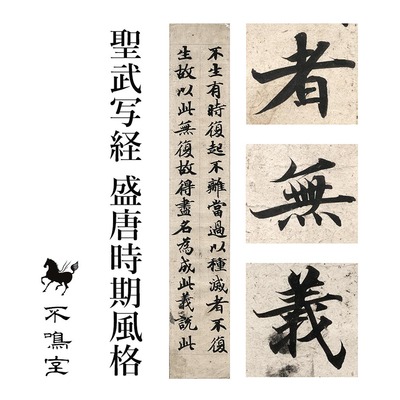 聖武写経 盛唐時期風格
不鳴室
不生有時復起不離當過以種滅者不復
生故以此無復故得盡名為成此義說此
者
無
義